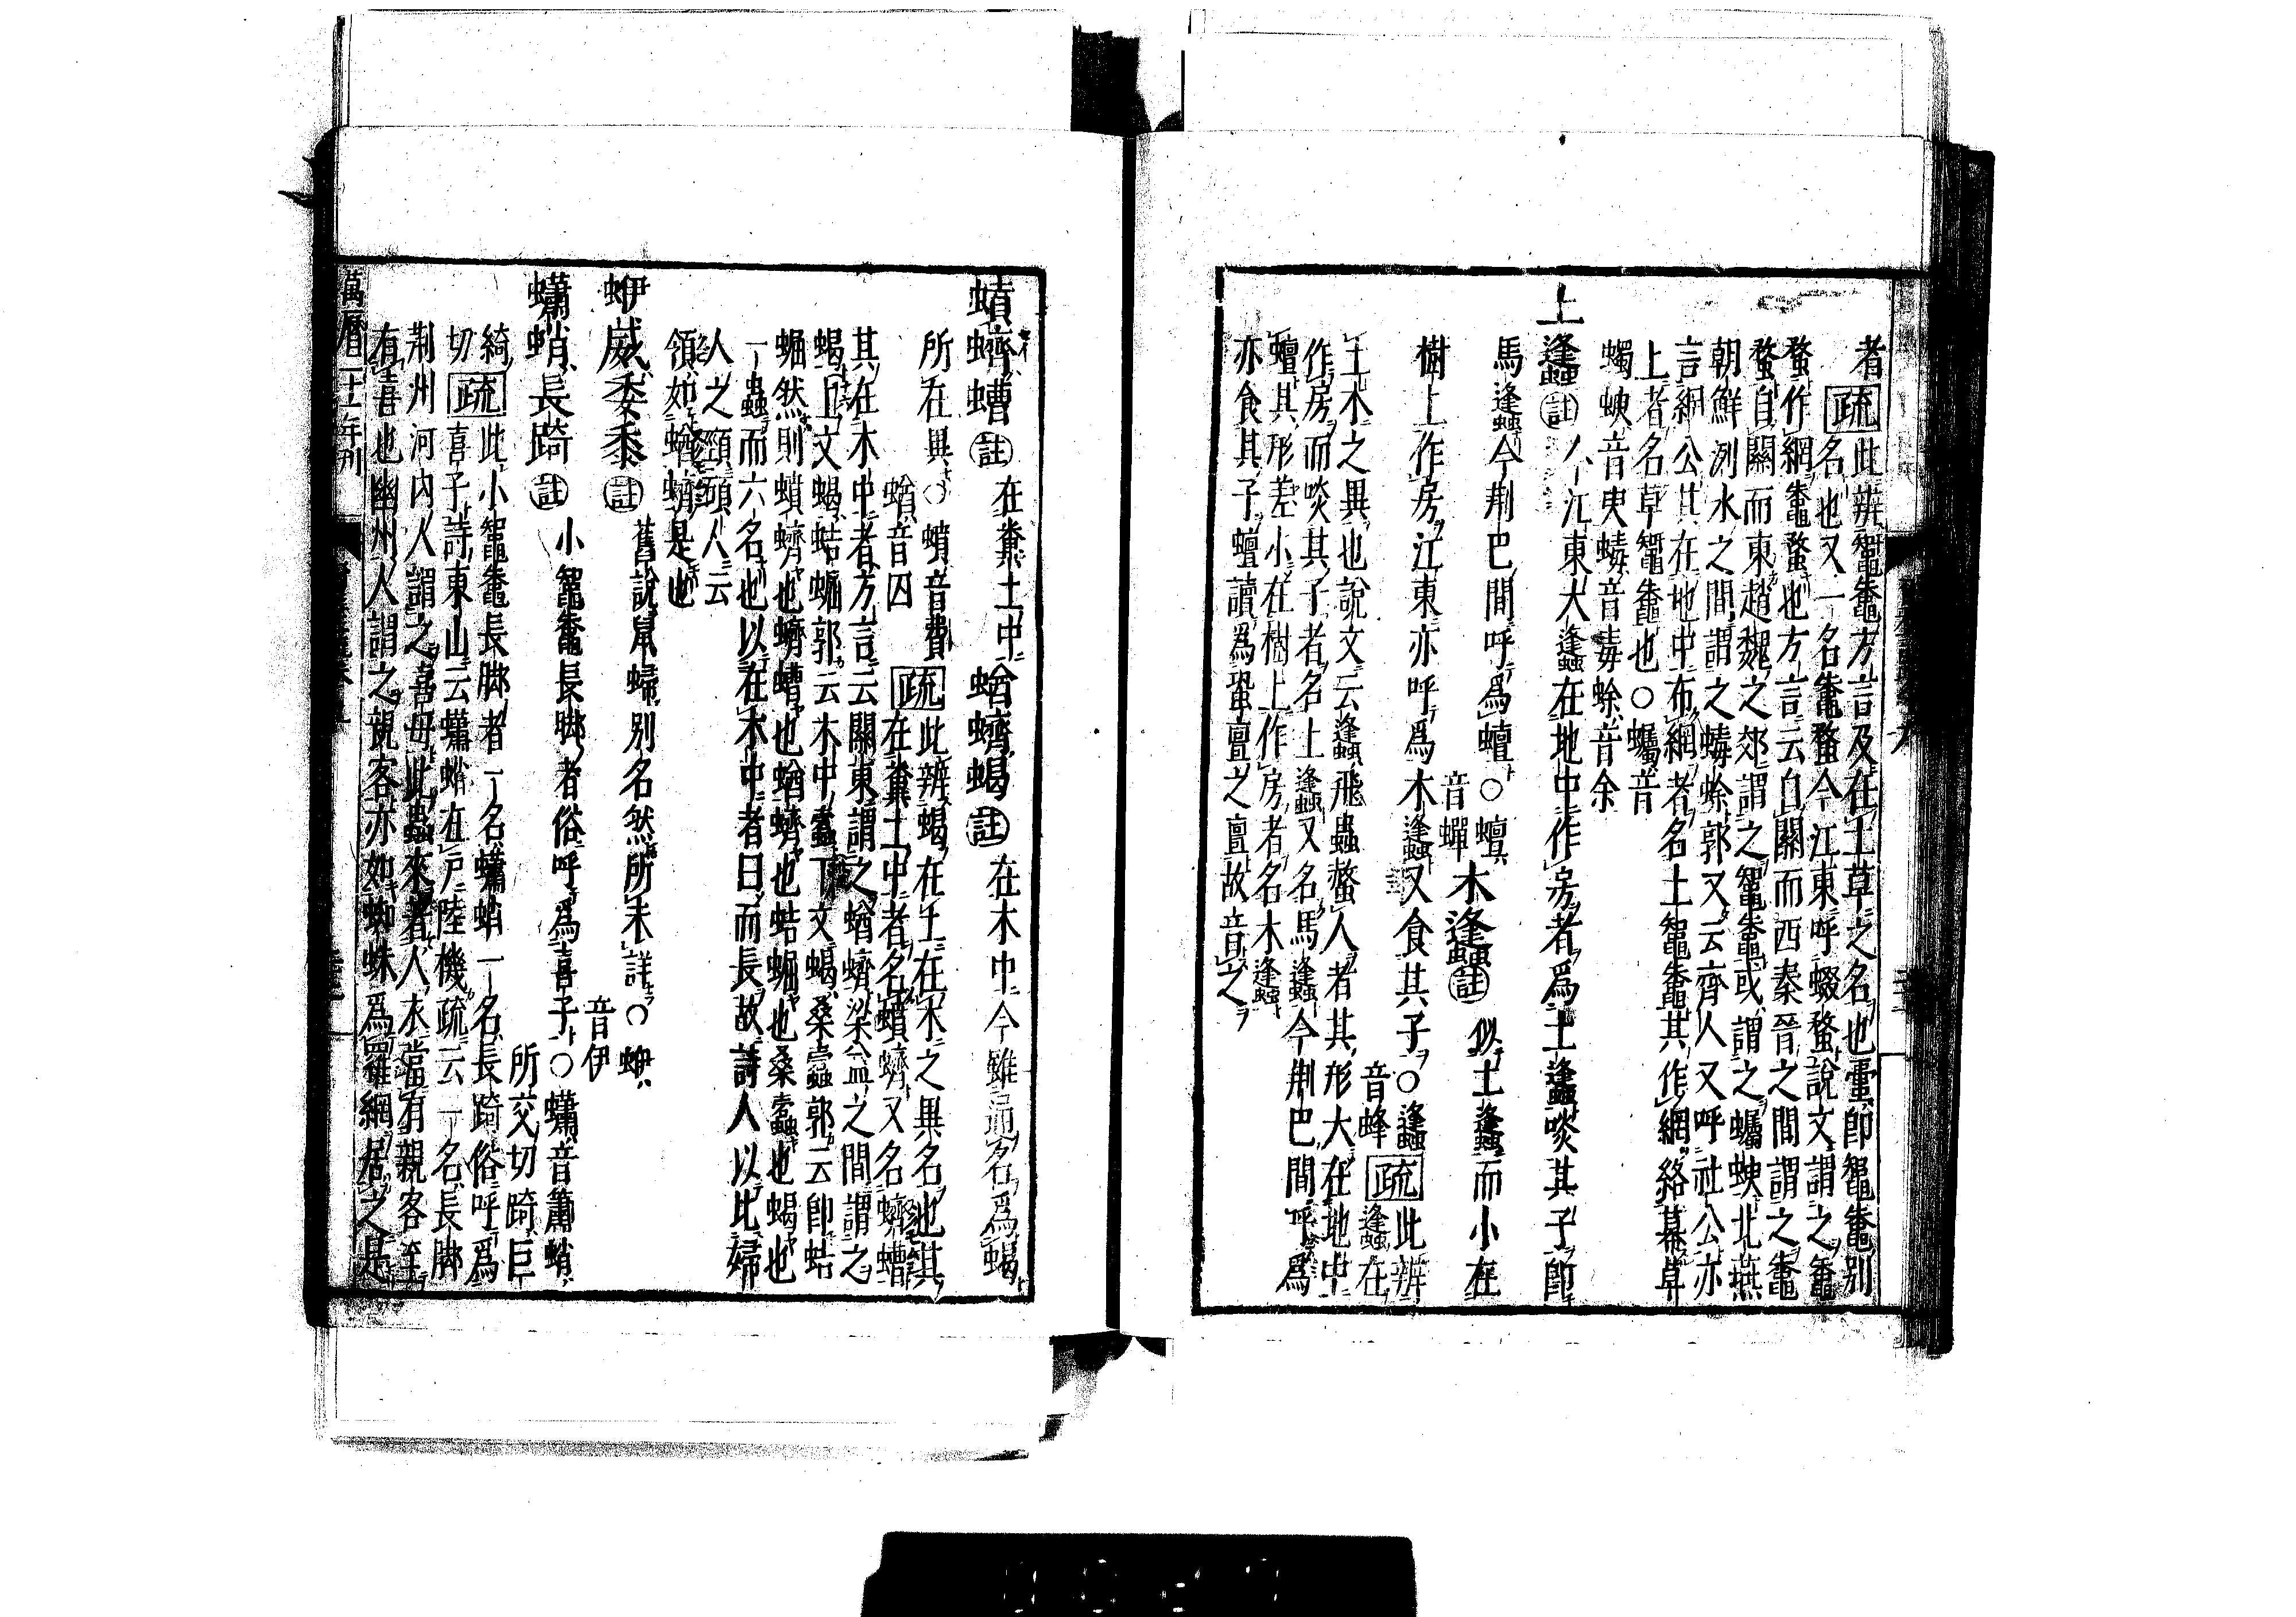 者
疏此辨鼅鼄方言及在土草之名也𧕦卽鼅鼄別
名也又一名鼄蝥今江東呼蝃蝥說文謂之鼄
蝥作網鼄蝥也方言云自關而西秦晉之間謂之鼄
蝥自關而東趙魏之郊謂之鼅鼄或謂之蠾蝓北燕
朝鮮洌水之間謂之蝳蜍郭又云齊人又呼社公亦
言網公其在地中布網者名土鼅鼄其作網絡幕草
上者名草鼅鼄也○蠾音
蠋蝓音臾蝳音毒蜍音余
土蠭註今江東大蠭在地中作房者爲土蠭啖其子卽
馬蠭今荆巴間呼爲蟺○蟺
音蟬
木蠭註似土蠭而小在
樹上作房江東亦呼爲木蠭又食其子○蠭
音蜂
疏此辨
蠭在
土木之異也說文云蠭飛蟲螫人者其形大在地中
作房而啖其子者名土蠭又名馬蠭今荆巴間呼爲
蟺其形差小在樹上作房者名木蠭
亦食其子蟺讀爲蛩亶之亶故音之
蟦蠐螬註在糞土中
蝤蠐蝎註在木中今雖通名爲蝎
所在異○蟦音費
蝤音囚
疏此辨蝎在土在木之異名也其
在糞土中者名蟦蠐又名蠐螬
其在木中者方言云關東謂之蝤蠐梁益之間謂之
蝎上文蝎蛣𧌑郭云木中蠹下文蝎桑蠹郭云卽蛣
𧌑然則蟦蠐也蠐螬也蝤蠐也蛣𧌑也桑蠹也蝎也
一蟲而六名也以在木中者白而長故詩人以比婦
人之頸碩人云
領如蝤蠐是也
蛜威委黍註舊說鼠婦別名然所未詳○蛜
音伊
蠨蛸長踦註小鼅鼄長脚者俗呼爲喜子○蠨音簫蛸
所交切踦巨
綺
切疏此小鼅鼄長脚者一名蠨蛸一名長踦俗呼爲
喜子詩東山云蠨蛸在戸陸機疏云一名長脚
荆州河內人謂之喜母此蟲來著人衣當有親客至
有喜也幽州人謂之親客亦如蜘蛛爲羅網居之是
萬曆二十一年刋